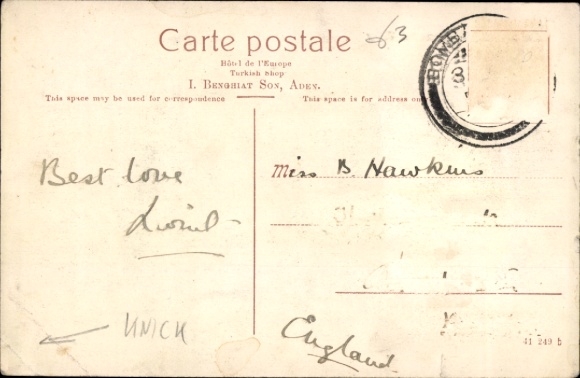 Carte postale
63
Hôtel de l'Europe
Turkish Shop
I. Benghiat Son, Aden.
This space may be used for correspondence
This space is for address on
BOMB
Best love
Lionel
Miss B. Hawkins
England
41 249 b